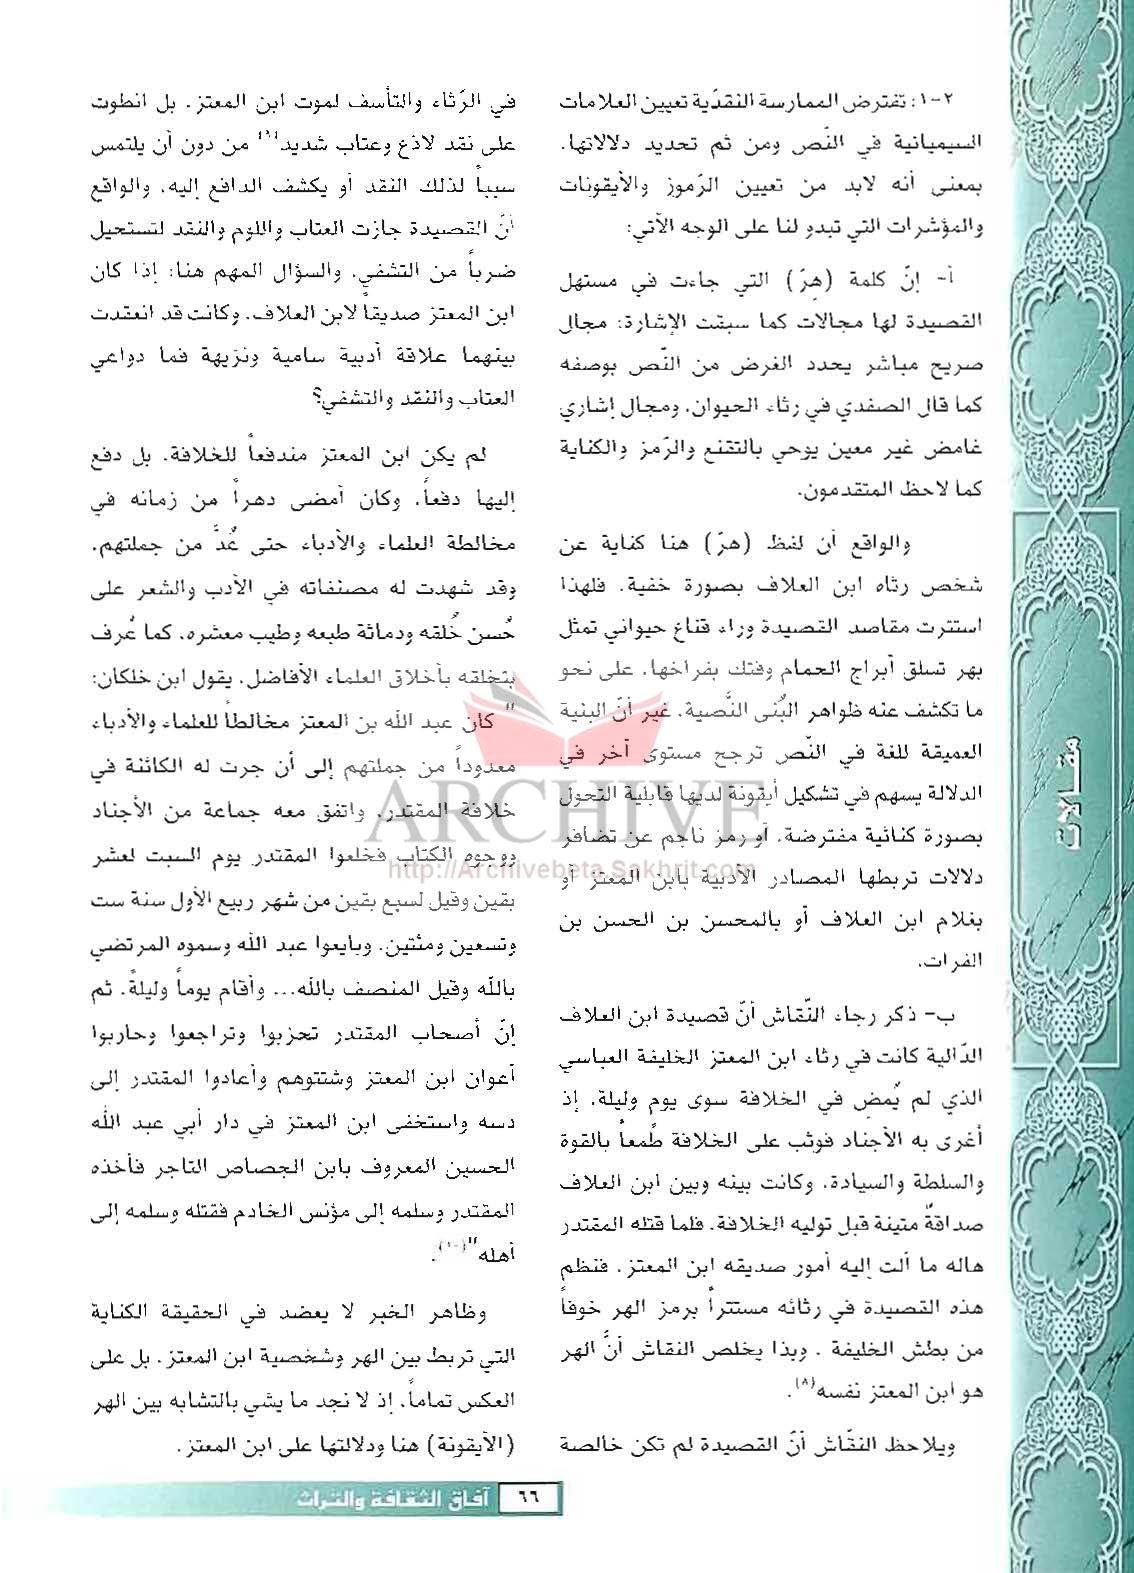 ٢-١: تفترض الممارسة النقدّية تعيين العلامات
السيميائية في النّص ومن ثم تحديد دلالاتها.
بمعنى أنه لابد من تعيين الرّموز والأيقونات
والمؤشرات التي تبدو لنا على الوجه الآتي:
أ- إنّ كلمة (هِرّ) التي جاءت في مستهل
القصيدة لها مجالات كما سبقت الإشارة: مجال
صريح مباشر يحدد الغرض من النّص بوصفه
كما قال الصفدي في رثاء الحيوان. ومجال إشاري
غامض غير معين يوحي بالتقنع والرّمز والكناية
كما لاحظ المتقدمون.
والواقع أن لفظ (هرّ) هنا كناية عن
شخص رثاه ابن العلاف بصورة خفية. فلهذا
استترت مقاصد القصيدة وراء قناع حيواني تمثل
بهر تسلق أبراج الحمام وفتك بفراخها. على نحو
ما تكشف عنه ظواهر البُنى النَّصية. غير أنّ البنية
العميقة للغة في النّص ترجح مستوى آخر في
الدلالة يسهم في تشكيل أيقونة لديها قابلية التحول
بصورة كنائية مفترضة. أو رمز ناجم عن تضافر
دلالات تربطها المصادر الأدبية بابن المعتز أو
بغلام ابن العلاف أو بالمحسن بن الحسن بن
الفرات.
ب- ذكر رجاء النّقاش أنّ قصيدة ابن العلاف
الدّالية كانت في رثاء ابن المعتز الخليفة العباسي
الذي لم يُمضِ في الخلافة سوى يوم وليلة. إذ
أغرى به الأجناد فوثب على الخلافة طمعاً بالقوة
والسلطة والسيادة. وكانت بينه وبين ابن العلاف
صداقةٌ متينة قبل توليه الخلافة. فلما قتله المقتدر
هاله ما آلت إليه أمور صديقه ابن المعتز. فنظم
هذه القصيدة في رثائه مستتراً برمز الهر خوفاً
من بطش الخليفة . وبذا يخلص النقاش أنَّ الهر
هو ابن المعتز نفسه(٨).
ويلاحظ النقّاش أنّ القصيدة لم تكن خالصة
في الرّثاء والتأسف لموت ابن المعتز. بل انطوت
على نقد لاذع وعتاب شديد(٩) من دون أن يلتمس
سبباً لذلك النقد أو يكشف الدافع إليه. والواقع
أنّ القصيدة جازت العتاب واللوم والنقد لتستحيل
ضرباً من التشفي. والسؤال المهم هنا: إذا كان
ابن المعتز صديقاً لابن العلاف. وكانت قد انعقدت
بينهما علاقة أدبية سامية ونزيهة فما دواعي
العتاب والنقد والتشفي؟
لم يكن ابن المعتز مندفعاً للخلافة. بل دفع
إليها دفعاً. وكان أمضى دهراً من زمانه في
مخالطة العلماء والأدباء حتى عُدَّ من جملتهم.
وقد شهدت له مصنفاته في الأدب والشعر على
حُسن خُلقه ودماثة طبعه وطيب معشره. كما عُرف
بتخلقه بأخلاق العلماء الأفاضل. يقول ابن خلكان:
" كان عبد الله بن المعتز مخالطاً للعلماء والأدباء
معدوداً من جملتهم إلى أن جرت له الكائنة في
خلافة المقتدر. واتفق معه جماعة من الأجناد
ووجوه الكتاب فخلعوا المقتدر يوم السبت لعشر
بقين وقيل لسبع بقين من شهر ربيع الأول سنة ست
وتسعين ومئتين. وبايعوا عبد الله وسموه المرتضي
بالله وقيل المنصف بالله... وأقام يوماً وليلةً. ثم
إنّ أصحاب المقتدر تحزبوا وتراجعوا وحاربوا
أعوان ابن المعتز وشتتوهم وأعادوا المقتدر إلى
دسه واستخفى ابن المعتز في دار أبي عبد الله
الحسين المعروف بابن الجصاص التاجر فأخذه
المقتدر وسلمه إلى مؤنس الخادم فقتله وسلمه إلى
أهله"(١٠).
وظاهر الخبر لا يعضد في الحقيقة الكناية
التي تربط بين الهر وشخصية ابن المعتز. بل على
العكس تماماً. إذ لا نجد ما يشي بالتشابه بين الهر
(الأيقونة) هنا ودلالتها على ابن المعتز.
مقالات
ARCHIVE
http://Archivebeta.Sakhrit.com
٦٦
آفاق الثقافة والتراث